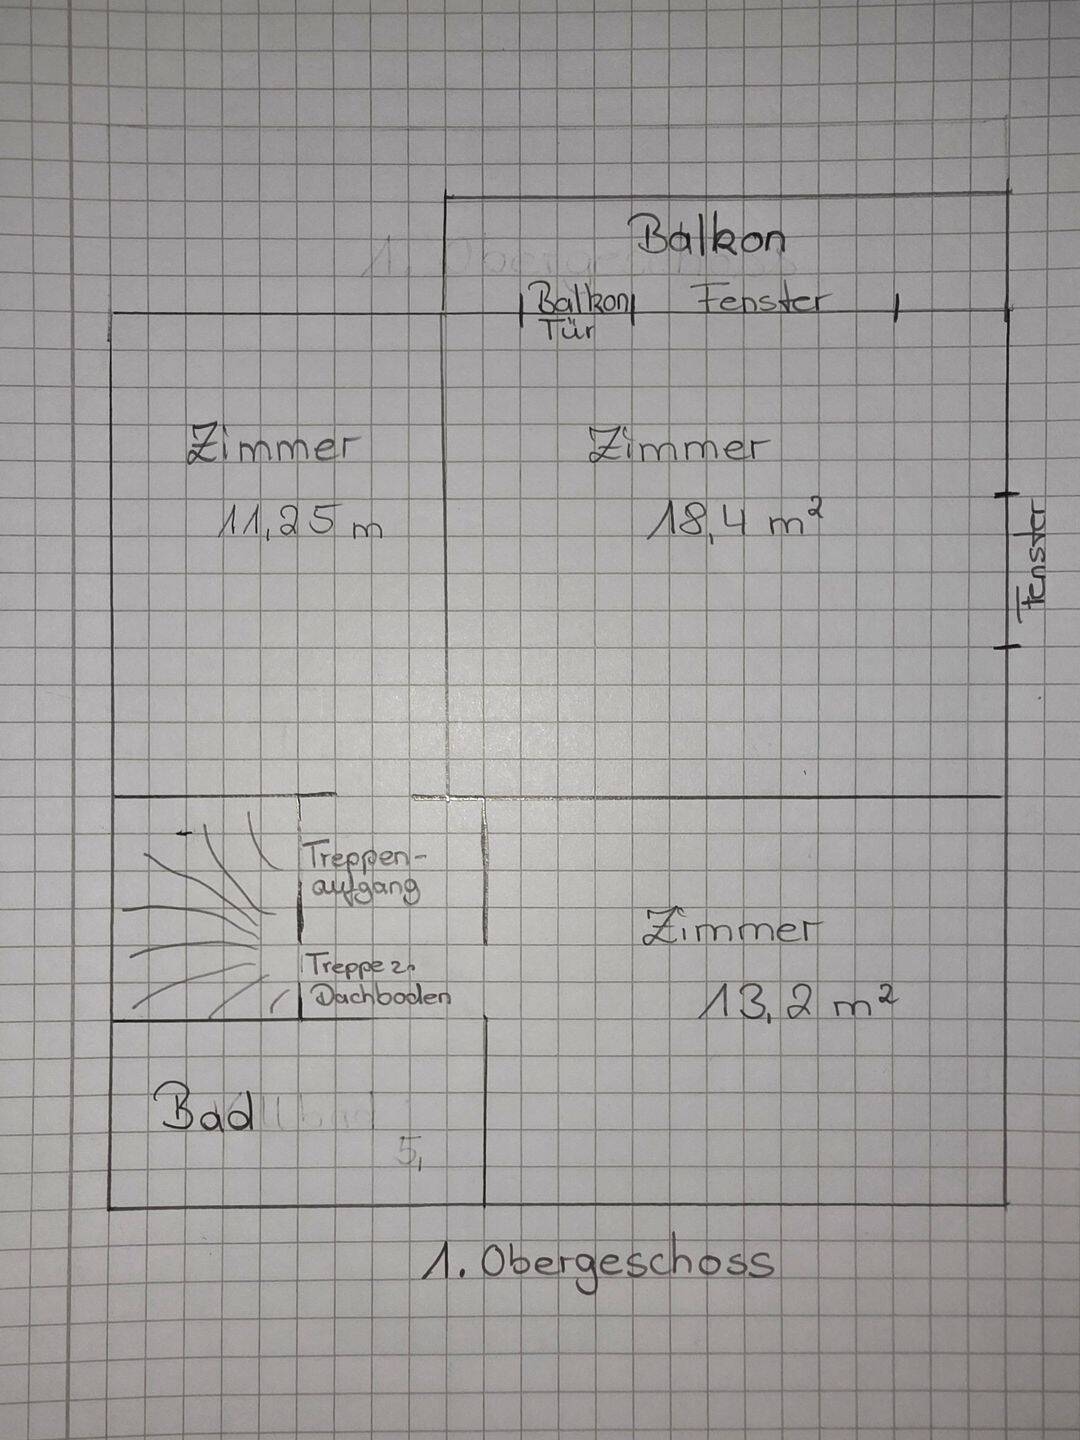 Balkon
Balkon
Tür
Fenster
Zimmer
11,25 m
Zimmer
18,4 m²
Fenster
Treppen-
aufgang
Treppe z.
Dachboden
Zimmer
13,2 m²
Bad
5,
1. Obergeschoss